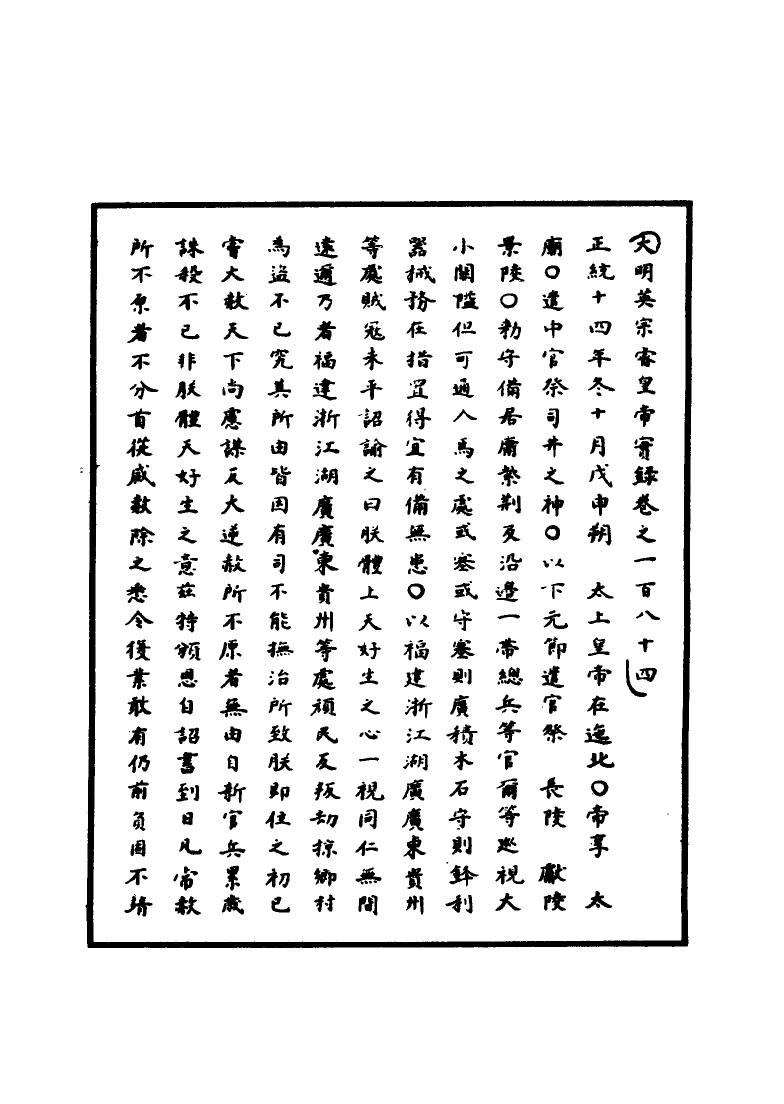 大明英宗睿皇帝實錄卷之一百八十四
正統十四年冬十月戊申朔　太上皇帝在迤北〇帝享　太
廟〇遣中官祭司井之神〇以下元節遣官祭　長陵　獻陵
景陵〇勑守備居庸紫荆及沿邊一帶總兵等官爾等廵視大
小関隘但可通人馬之處或塞或守塞則廣積木石守則鋒利
器械務在措置得宜有備無患〇以福建浙江湖廣廣東貴州
等處賊冦未平詔諭之曰朕體上天好生之心一視同仁無間
遠邇乃者福建浙江湖廣廣東貴州等處頑民反叛劫掠鄉村
為盜不已究其所由皆因有司不能撫治所致朕即位之初已
甞大赦天下尚慮謀反大逆赦所不原者無由自新官兵累歲
誅殺不已非朕體天好生之意玆特頒恩自詔書到日凡常赦
所不原者不分首從咸赦除之悉令復業敢有仍前負固不靖